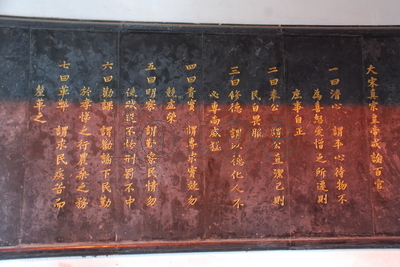 大宋真宗皇帝戒諭百官
一曰清心 謂平心待物不
為喜怒愛憎之所遷則
庶事自正
二曰奉公 謂公直潔己則
民自畏服
三曰修德 謂以德化人不
必專尚威猛
四曰責實 謂專求實競勿
競虛榮
五曰明察 謂勤察民情勿
使賦役不均刑罰不中
六曰勸課 謂勸諭下民勤
於孝悌之行農桑之務
七曰革弊 謂求民疾苦而
釐革之